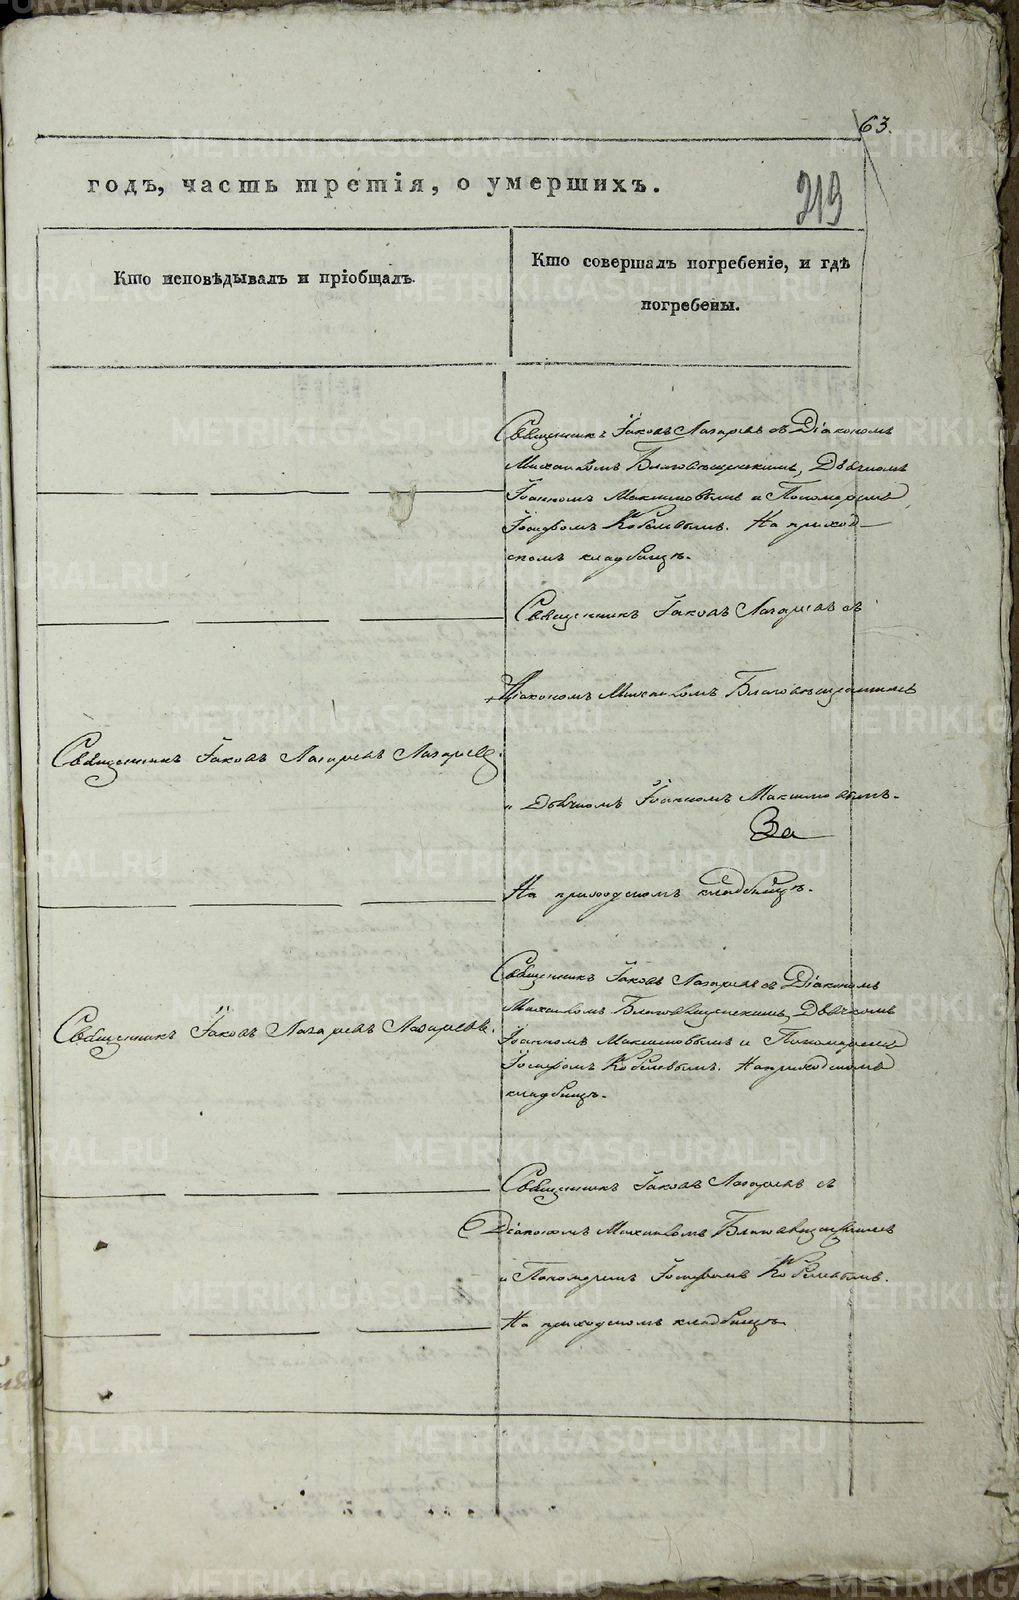 63.
годъ, часть третія, о умершихъ.
219
Кто исповѣдывалъ и пріобщалъ.
Кто совершалъ погребеніе, и гдѣ
погребены.
Священникъ Іаковъ Лазаревъ съ Діакономъ
Михаиломъ Благовѣщенскимъ, Дьячкомъ
Іоанномъ Максимовымъ и Пономаремъ
Іосифомъ Кобелевымъ. На приход
скомъ кладбищѣ.
Священникъ Іаковъ Лазаревъ съ
Діакономъ Михаиломъ Благовѣщенскимъ
Священникъ Іаковъ Лазаревъ Лазаревъ.
и Дьячкомъ Іоанномъ Максимовымъ.
За
На приходскомъ кладбищѣ.
Священникъ Іаковъ Лазаревъ съ Діакономъ
Михаиломъ Благовѣщенскимъ, Дьячкомъ
Священникъ Іаковъ Лазаревъ Лазаревъ.
Іоанномъ Максимовымъ и Пономаремъ
Іосифомъ Кобелевымъ. На приходскомъ
кладбищѣ.
Священникъ Іаковъ Лазаревъ съ
Діакономъ Михаиломъ Благовѣщенскимъ
и Пономаремъ Іосифомъ Кобелевымъ.
На приходскомъ кладбищѣ
METRIKI.GASO-URAL.RU